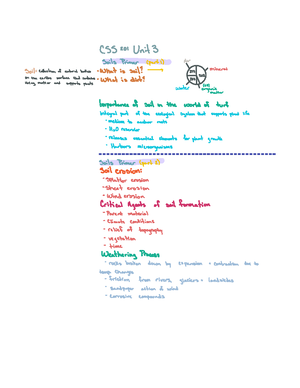 CSS Unit 3
Soils Primer (part 1)
Soil: collection of natural bodies
on the earths surface that contains
living matter and supports plants
- What is soil?
- What is dirt?
air
mineral
water
organic
matter
Importance of soil in the world of turf
Integral part of the ecological system that supports plant life
- medium to anchor roots
- H2O reservoir
- releases essential elements for plant growth
- Harbors microorganisms
Soils Primer (part 2)
Soil erosion:
- Splatter erosion
- Sheet erosion
- Wind erosion
Critical Agents of soil formation
- Parent material
- Climate conditions
- relief of topography
- vegetation
- time
Weathering Process
- rocks broken down by expansion + contraction due to
temp changes
- friction from rivers, glaciers + landslides
- Sandpaper action of wind
- Corrosive compounds